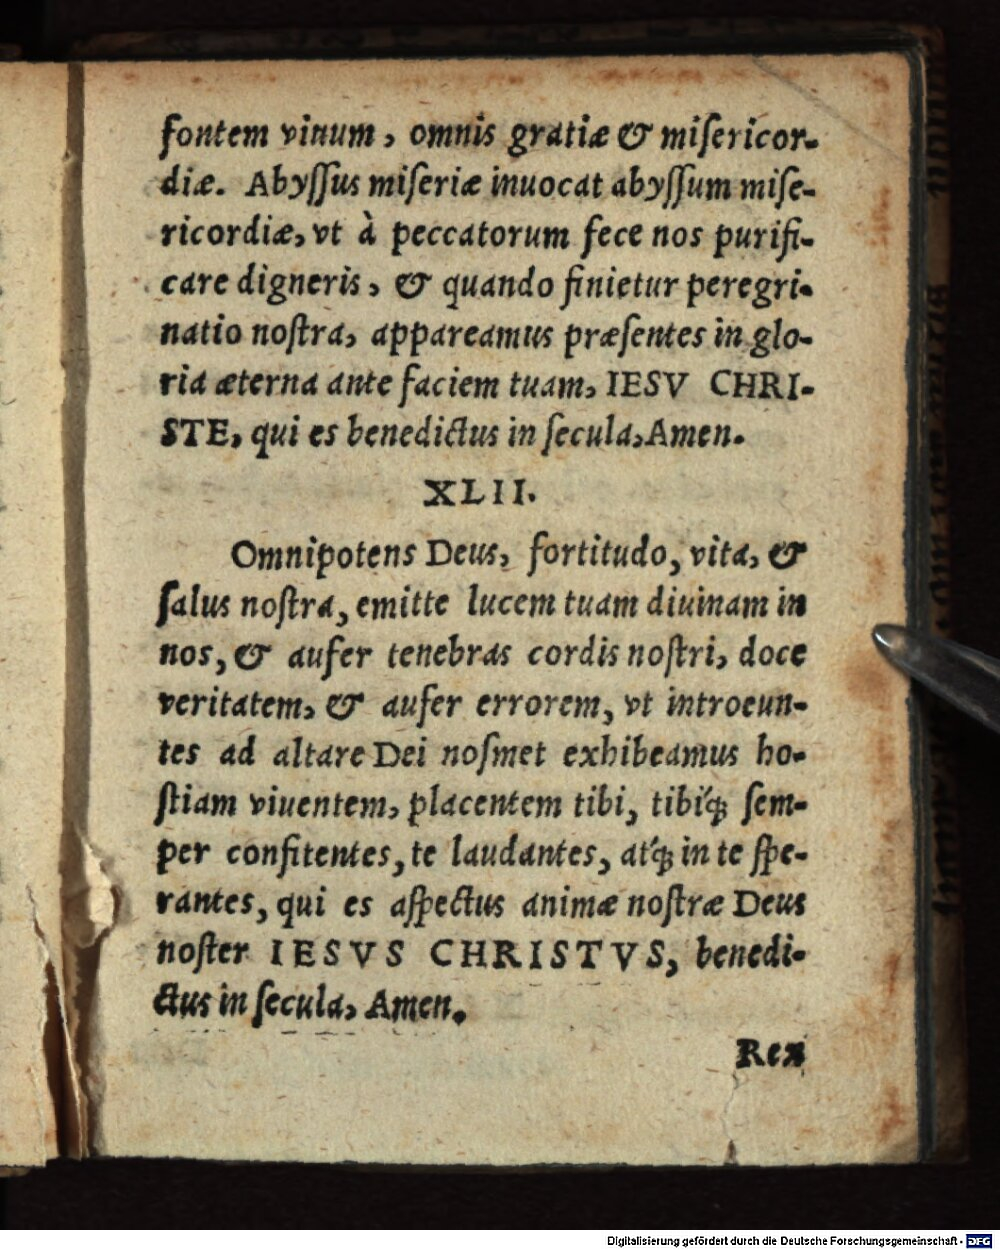 fontem viuum, omnis gratiæ & miſericor-
diæ. Abyſſus miſeriæ inuocat abyſſum miſe-
ricordiæ, vt à peccatorum fece nos purifi-
care digneris, & quando finietur peregri-
natio noſtra, appareamus præſentes in glo-
ria æterna ante faciem tuam, IESV CHRI-
STE, qui es benedictus in ſecula, Amen.
XLII.
Omnipotens Deus, fortitudo, vita, &
ſalus noſtra, emitte lucem tuam diuinam in
nos, & aufer tenebras cordis noſtri, doce
veritatem, & aufer errorem, vt introeun-
tes ad altare Dei noſmet exhibeamus ho-
ſtiam viuentem, placentem tibi, tibíq; ſem-
per confitentes, te laudantes, atq́; in te ſpe-
rantes, qui es aſpectus animæ noſtræ Deus
noſter IESVS CHRISTVS, benedi-
ctus in ſecula, Amen.
Rex
Digitalisierung gefördert durch die Deutsche Forschungsgemeinschaft - DFG